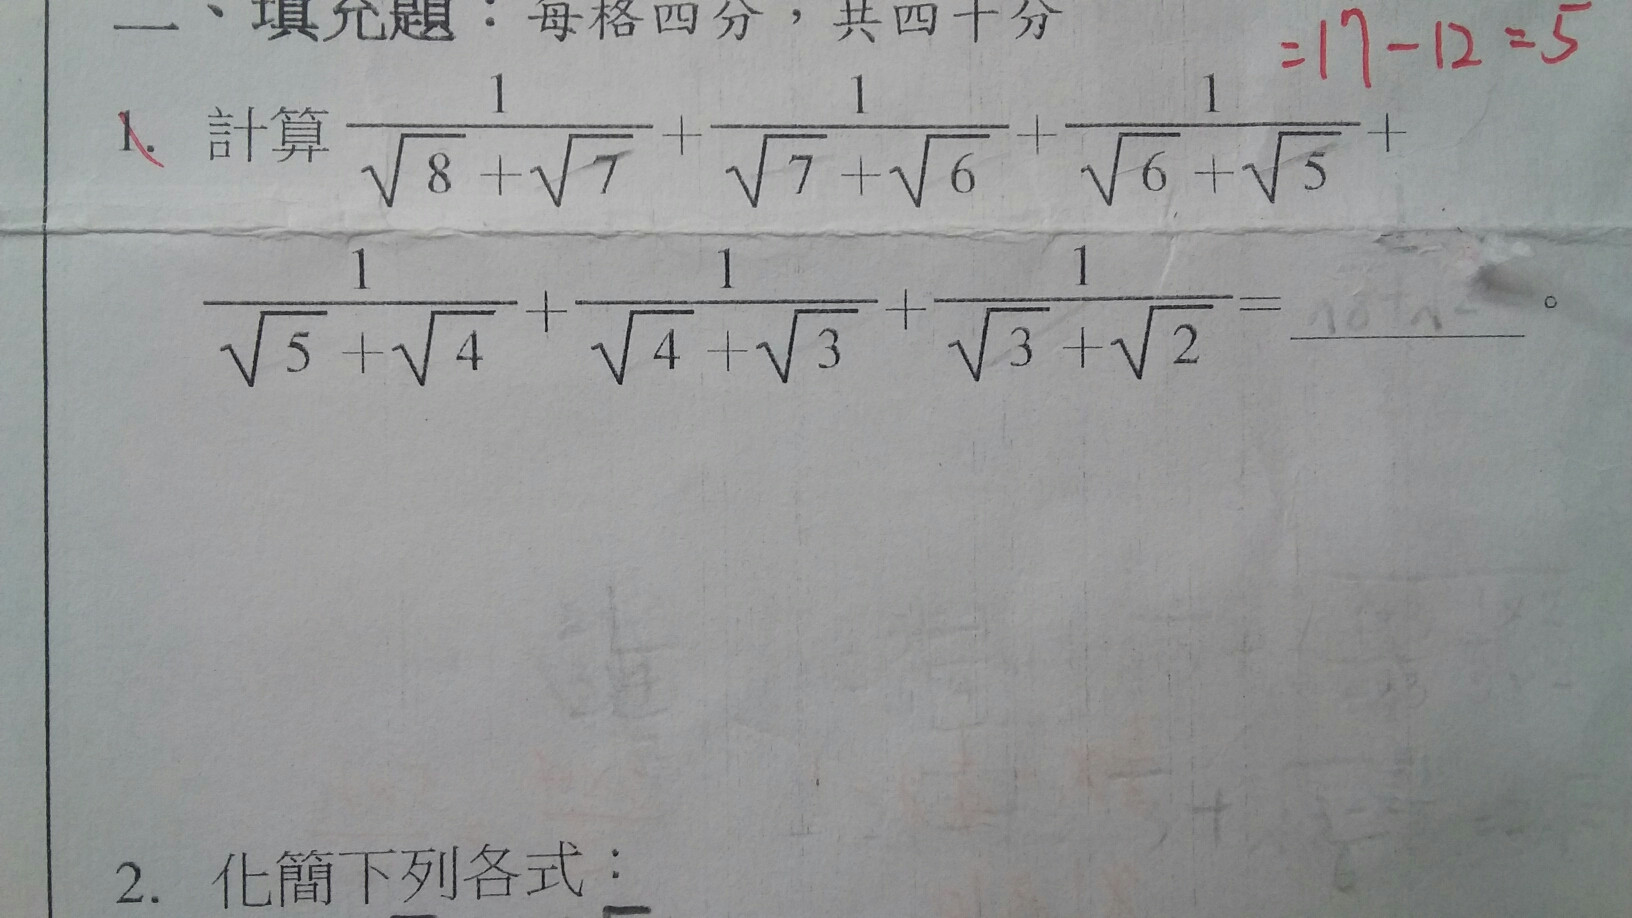 二、填充題：每格四分，共四十分
=17-12=5
1. 計算 1/(√8+√7) + 1/(√7+√6) + 1/(√6+√5) +
1/(√5+√4) + 1/(√4+√3) + 1/(√3+√2) = ____。
2. 化簡下列各式：